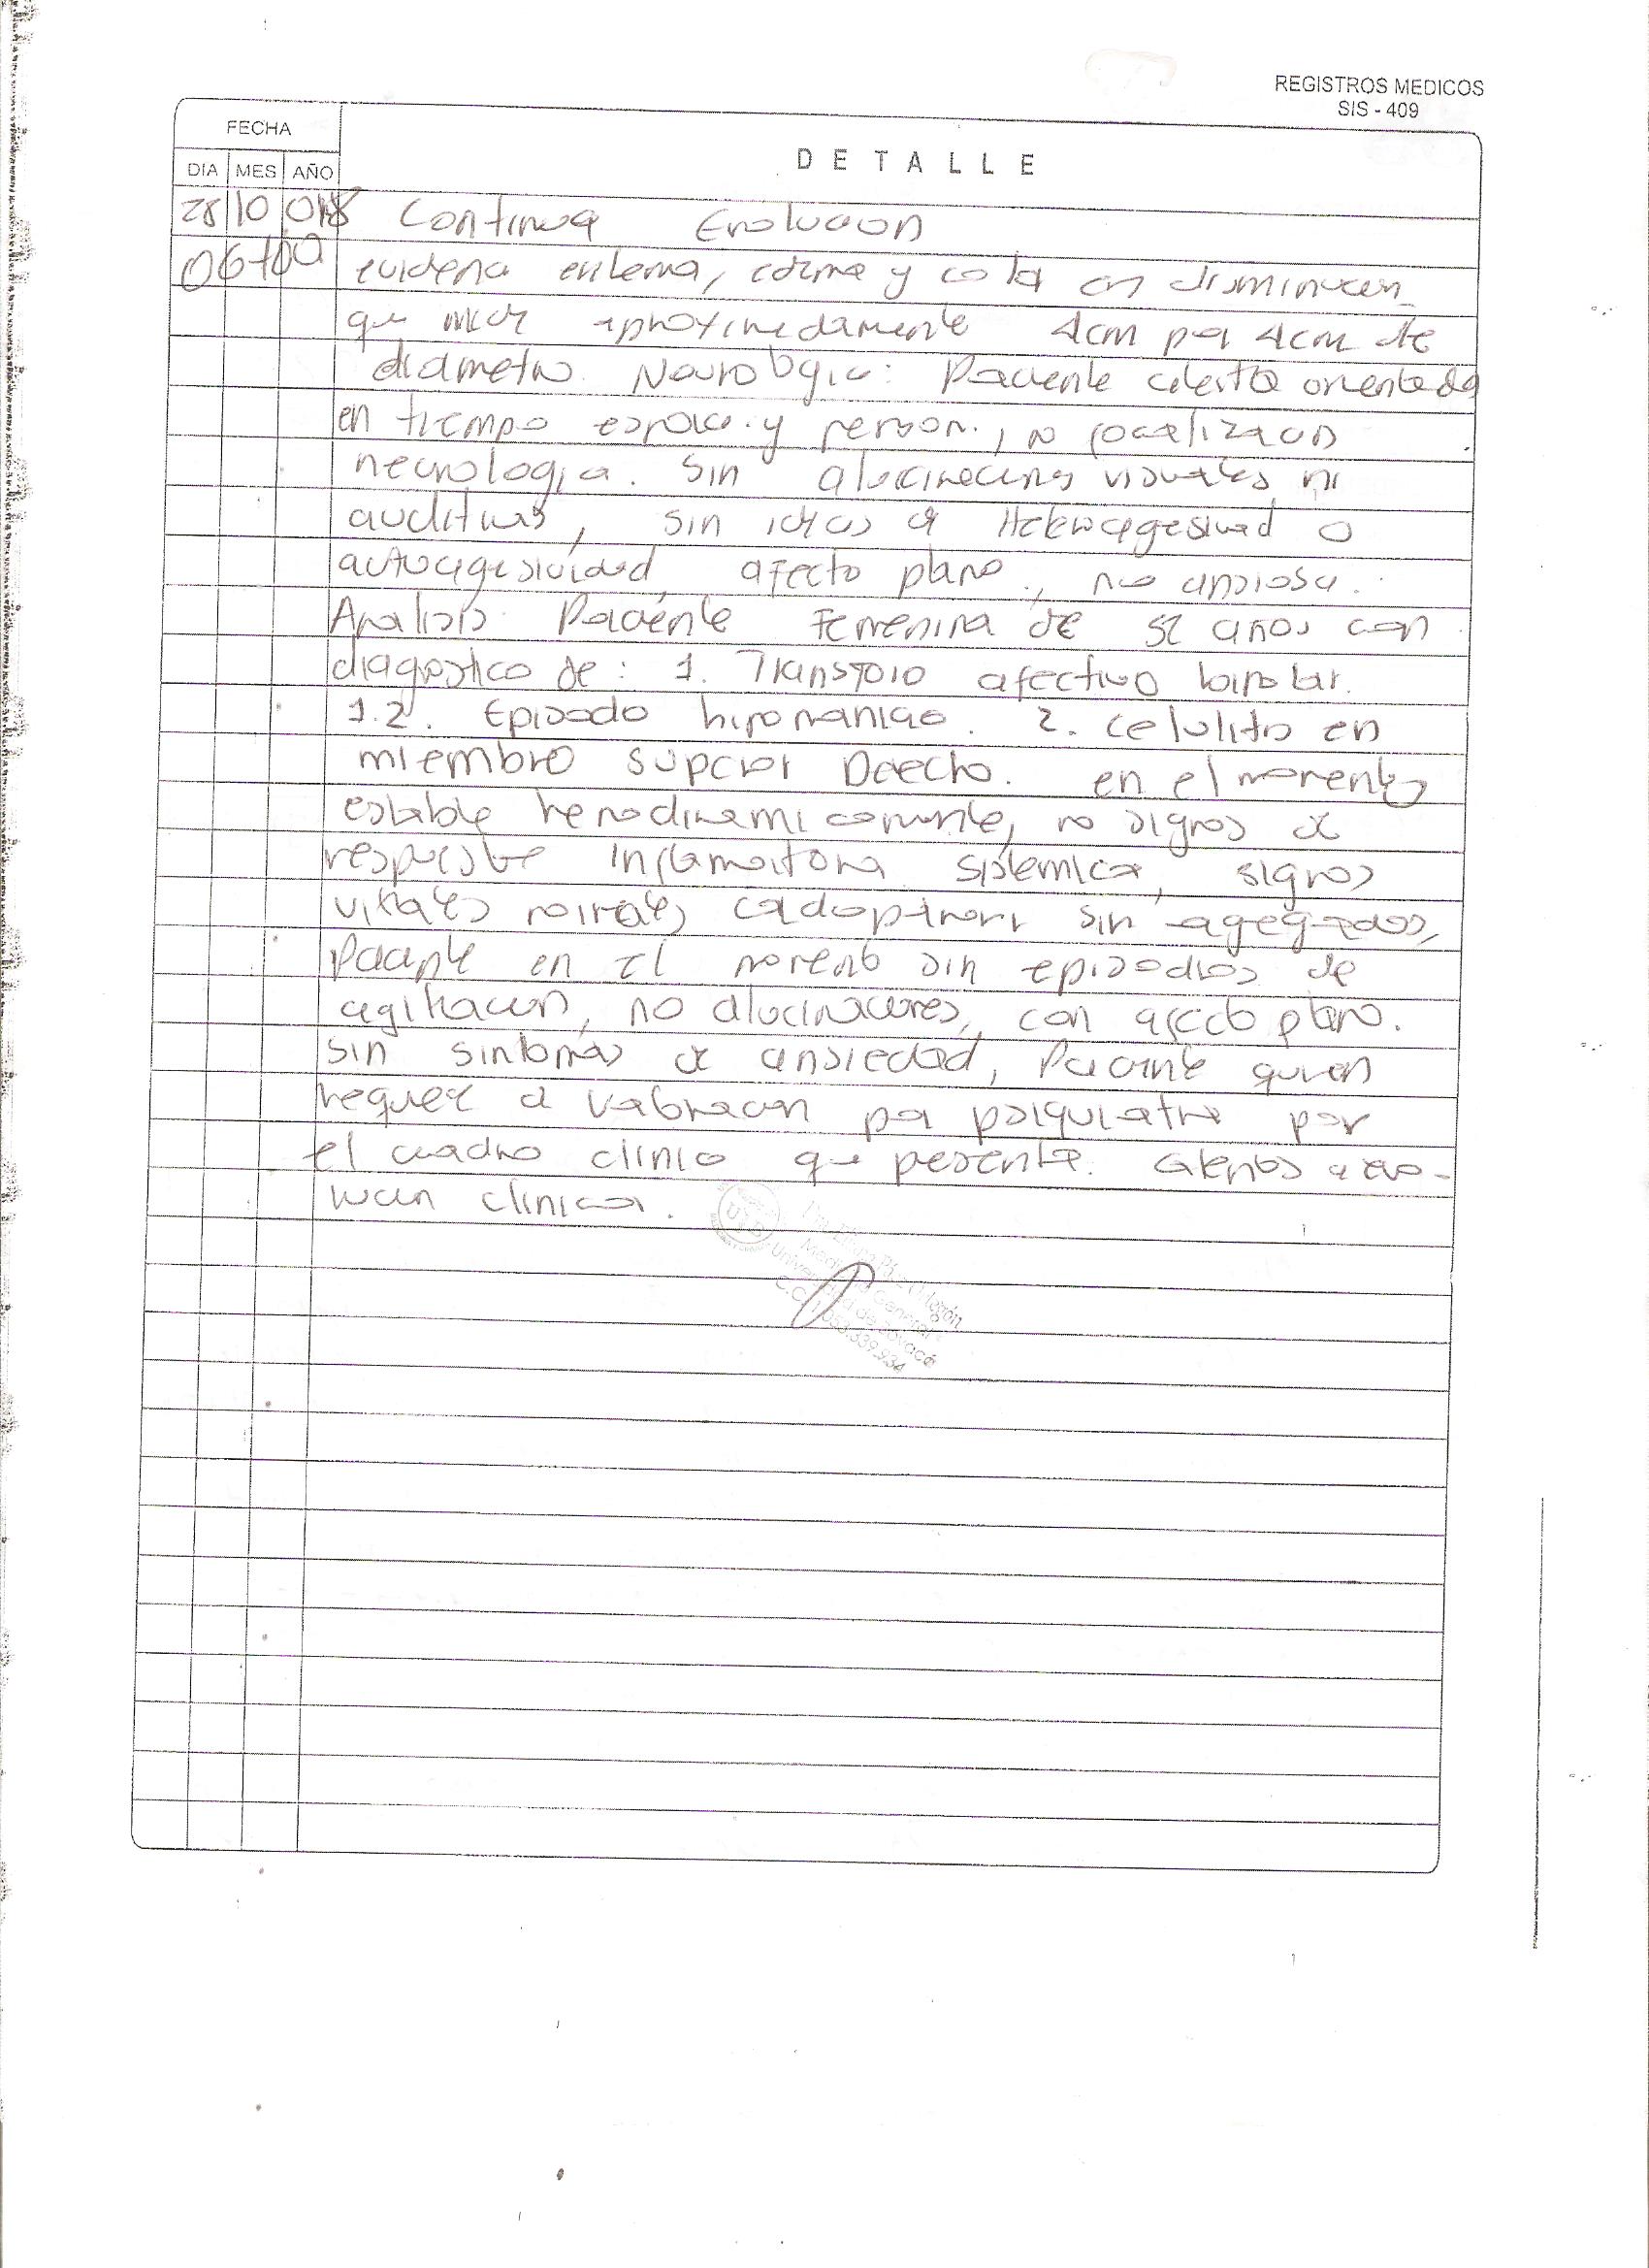 REGISTROS MEDICOS
SIS - 409
FECHA
DIA MES AÑO
DETALLE
28 10 018 Continua Evolucion
06+00 evidencia eritema, edema y calor en disminucion
que mide aproximadamente 4cm por 4cm de
diametro. Neurologico: Paciente alerta orientada
en tiempo espacio y person., no focalizacion
neurologica. Sin alucinaciones visuales ni
auditivas, sin ideas de Heteroagresividad o
autoagresividad, afecto plano, no ansiosa.
Analisis: Paciente Femenina de 52 años con
diagnostico de: 1. Transtorno afectivo bipolar.
1.2. Episodio hipomaniaco. 2. celulitis en
miembro superior Derecho. en el momento
estable hemodinamicamente, no signos de
respuesta inflamatoria sistemica, signos
vitales normales, cardiopulmonar sin agregados,
Paciente en el momento sin episodios de
agitacion, no alucinaciones, con afecto plano.
sin sintomas de ansiedad, Paciente quien
requiere valoracion por psiquiatria por
el cuadro clinico que presenta. atentos a evo-
lucion clinica.
Medicina General
Universidad de Boyacá
C.C.